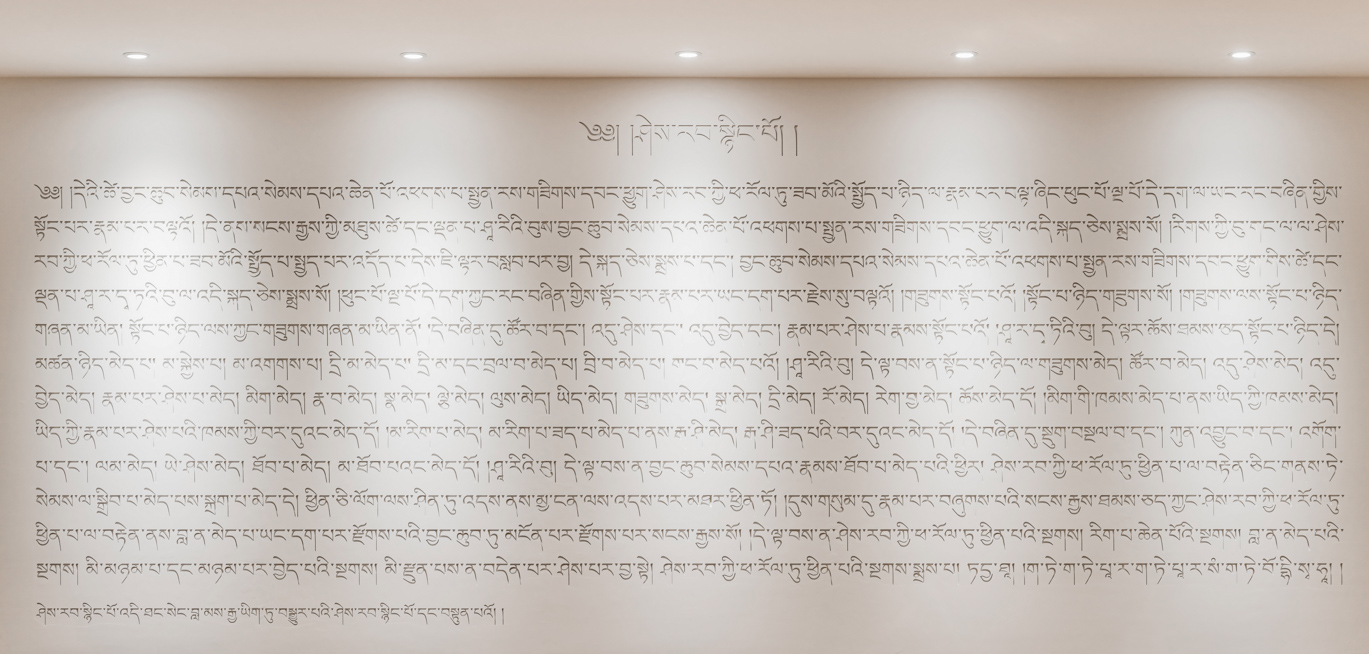 ༄༅། །ཤེས་རབ་སྙིང་པོ། །
༄༅། །དེའི་ཚེ་བྱང་ཆུབ་སེམས་དཔའ་སེམས་དཔའ་ཆེན་པོ་འཕགས་པ་སྤྱན་རས་གཟིགས་དབང་ཕྱུག་ཤེས་རབ་ཀྱི་ཕ་རོལ་ཏུ་ཟབ་མོའི་སྤྱོད་པ་ཉིད་ལ་རྣམ་པར་བལྟ་ཞིང་ཕུང་པོ་ལྔ་པོ་དེ་དག་ལ་ཡང་རང་བཞིན་གྱིས་
སྟོང་པར་རྣམ་པར་བལྟའོ། །དེ་ནས་སངས་རྒྱས་ཀྱི་མཐུས་ཚེ་དང་ལྡན་པ་ཤཱ་རིའི་བུས་བྱང་ཆུབ་སེམས་དཔའ་ཆེན་པོ་འཕགས་པ་སྤྱན་རས་གཟིགས་དབང་ཕྱུག་ལ་འདི་སྐད་ཅེས་སྨྲས་སོ། །རིགས་ཀྱི་བུ་གང་ལ་ལ་ཤེས་
རབ་ཀྱི་ཕ་རོལ་ཏུ་ཕྱིན་པ་ཟབ་མོའི་སྤྱོད་པ་སྤྱད་པར་འདོད་པ་དེས་ཇི་ལྟར་བསླབ་པར་བྱ། དེ་སྐད་ཅེས་སྨྲས་པ་དང་། བྱང་ཆུབ་སེམས་དཔའ་སེམས་དཔའ་ཆེན་པོ་འཕགས་པ་སྤྱན་རས་གཟིགས་དབང་ཕྱུག་གིས་ཚེ་དང་
ལྡན་པ་ཤཱ་ར་དྭ་ཏའི་བུ་ལ་འདི་སྐད་ཅེས་སྨྲས་སོ། །ཕུང་པོ་ལྔ་པོ་དེ་དག་ཀྱང་རང་བཞིན་གྱིས་སྟོང་པར་རྣམ་པར་ཡང་དག་པར་རྗེས་སུ་བལྟའོ། །གཟུགས་སྟོང་པའོ། །སྟོང་པ་ཉིད་གཟུགས་སོ། །གཟུགས་ལས་སྟོང་པ་ཉིད་
གཞན་མ་ཡིན། སྟོང་པ་ཉིད་ལས་ཀྱང་གཟུགས་གཞན་མ་ཡིན་ནོ། །དེ་བཞིན་དུ་ཚོར་བ་དང་། འདུ་ཤེས་དང་། འདུ་བྱེད་དང་། རྣམ་པར་ཤེས་པ་རྣམས་སྟོང་པའོ། །ཤཱ་ར་དྭ་ཏིའི་བུ། དེ་ལྟར་ཆོས་ཐམས་ཅད་སྟོང་པ་ཉིད་དེ།
མཚན་ཉིད་མེད་པ། མ་སྐྱེས་པ། མ་འགགས་པ། དྲི་མ་མེད་པ། དྲི་མ་དང་བྲལ་བ་མེད་པ། བྲི་བ་མེད་པ། གང་བ་མེད་པའོ། །ཤཱ་རིའི་བུ། དེ་ལྟ་བས་ན་སྟོང་པ་ཉིད་ལ་གཟུགས་མེད། ཚོར་བ་མེད། འདུ་ཤེས་མེད། འདུ་
བྱེད་མེད། རྣམ་པར་ཤེས་པ་མེད། མིག་མེད། རྣ་བ་མེད། སྣ་མེད། ལྕེ་མེད། ལུས་མེད། ཡིད་མེད། གཟུགས་མེད། སྒྲ་མེད། དྲི་མེད། རོ་མེད། རེག་བྱ་མེད། ཆོས་མེད་དོ། །མིག་གི་ཁམས་མེད་པ་ནས་ཡིད་ཀྱི་ཁམས་མེད།
ཡིད་ཀྱི་རྣམ་པར་ཤེས་པའི་ཁམས་ཀྱི་བར་དུའང་མེད་དོ། །མ་རིག་པ་མེད། མ་རིག་པ་ཟད་པ་མེད་པ་ནས་རྒ་ཤི་མེད། རྒ་ཤི་ཟད་པའི་བར་དུའང་མེད་དོ། །དེ་བཞིན་དུ་སྡུག་བསྔལ་བ་དང་། ཀུན་འབྱུང་བ་དང་། འགོག་
པ་དང་། ལམ་མེད། ཡེ་ཤེས་མེད། ཐོབ་པ་མེད། མ་ཐོབ་པའང་མེད་དོ། །ཤཱ་རིའི་བུ། དེ་ལྟ་བས་ན་བྱང་ཆུབ་སེམས་དཔའ་རྣམས་ཐོབ་པ་མེད་པའི་ཕྱིར། ཤེས་རབ་ཀྱི་ཕ་རོལ་ཏུ་ཕྱིན་པ་ལ་བརྟེན་ཅིང་གནས་ཏེ་
སེམས་ལ་སྒྲིབ་པ་མེད་པས་སྐྲག་པ་མེད་དེ། ཕྱིན་ཅི་ལོག་ལས་ཤིན་ཏུ་འདས་ནས་མྱ་ངན་ལས་འདས་པར་མཐར་ཕྱིན་ཏོ། །དུས་གསུམ་དུ་རྣམ་པར་བཞུགས་པའི་སངས་རྒྱས་ཐམས་ཅད་ཀྱང་ཤེས་རབ་ཀྱི་ཕ་རོལ་ཏུ་
ཕྱིན་པ་ལ་བརྟེན་ནས་བླ་ན་མེད་པ་ཡང་དག་པར་རྫོགས་པའི་བྱང་ཆུབ་ཏུ་མངོན་པར་རྫོགས་པར་སངས་རྒྱས་སོ། །དེ་ལྟ་བས་ན་ཤེས་རབ་ཀྱི་ཕ་རོལ་ཏུ་ཕྱིན་པའི་སྔགས། རིག་པ་ཆེན་པོའི་སྔགས། བླ་ན་མེད་པའི་
སྔགས། མི་མཉམ་པ་དང་མཉམ་པར་བྱེད་པའི་སྔགས། མི་རྫུན་པས་ན་བདེན་པར་ཤེས་པར་བྱ་སྟེ། ཤེས་རབ་ཀྱི་ཕ་རོལ་ཏུ་ཕྱིན་པའི་སྔགས་སྨྲས་པ། ཏདྱ་ཐཱ། །ག་ཏེ་ག་ཏེ་པཱ་ར་ག་ཏེ་པཱ་ར་སཾ་ག་ཏེ་བོ་དྷི་སྭཱ་ཧཱ། །
ཤེས་རབ་སྙིང་པོ་འདི་ཐང་སེང་བླ་མས་རྒྱ་ཡིག་ཏུ་བསྒྱུར་པའི་ཤེས་རབ་སྙིང་པོ་དང་བསྟུན་པའོ། །